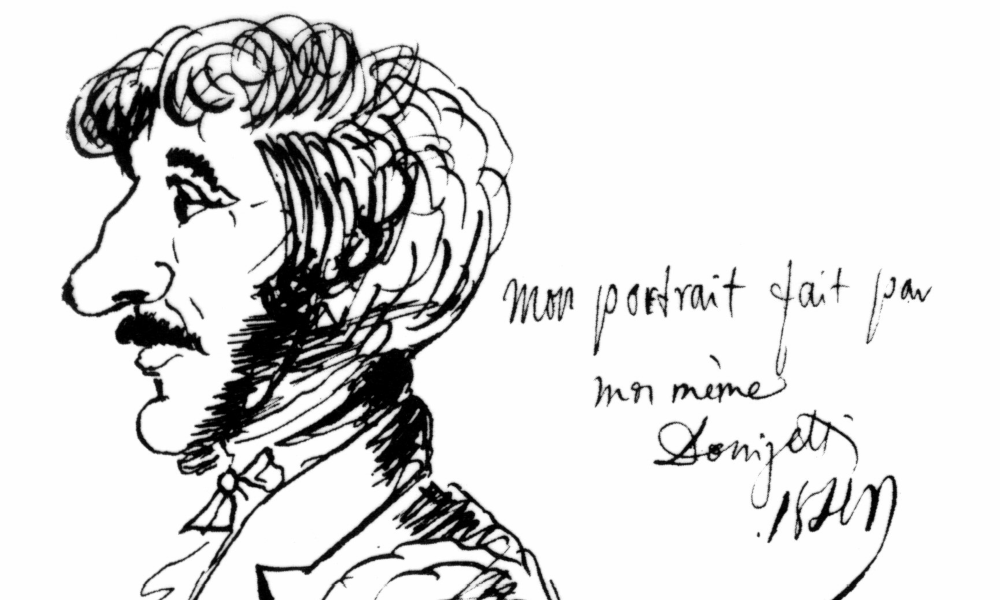 mon portrait fait par
moi même
Donizetti